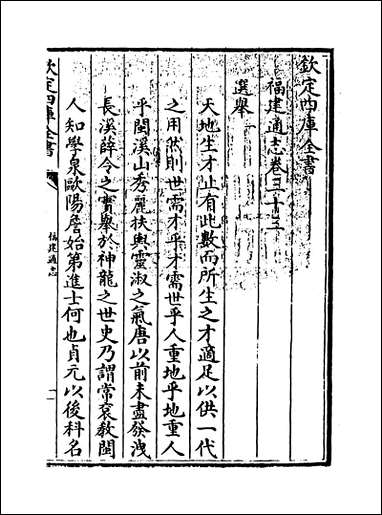 欽定四庫全書
福建通志卷三十三
選舉
天地生才止有此數而所生之才適足以供一代
之用然則世需才乎才需世乎人重地乎地重人
乎閩溪山秀麗扶輿靈淑之氣唐以前未盡發洩
長溪薛令之實舉於神龍之世史乃謂常袞教閩
人知學泉歐陽詹始第進士何也貞元以後科名
欽定四庫全書
福建通志